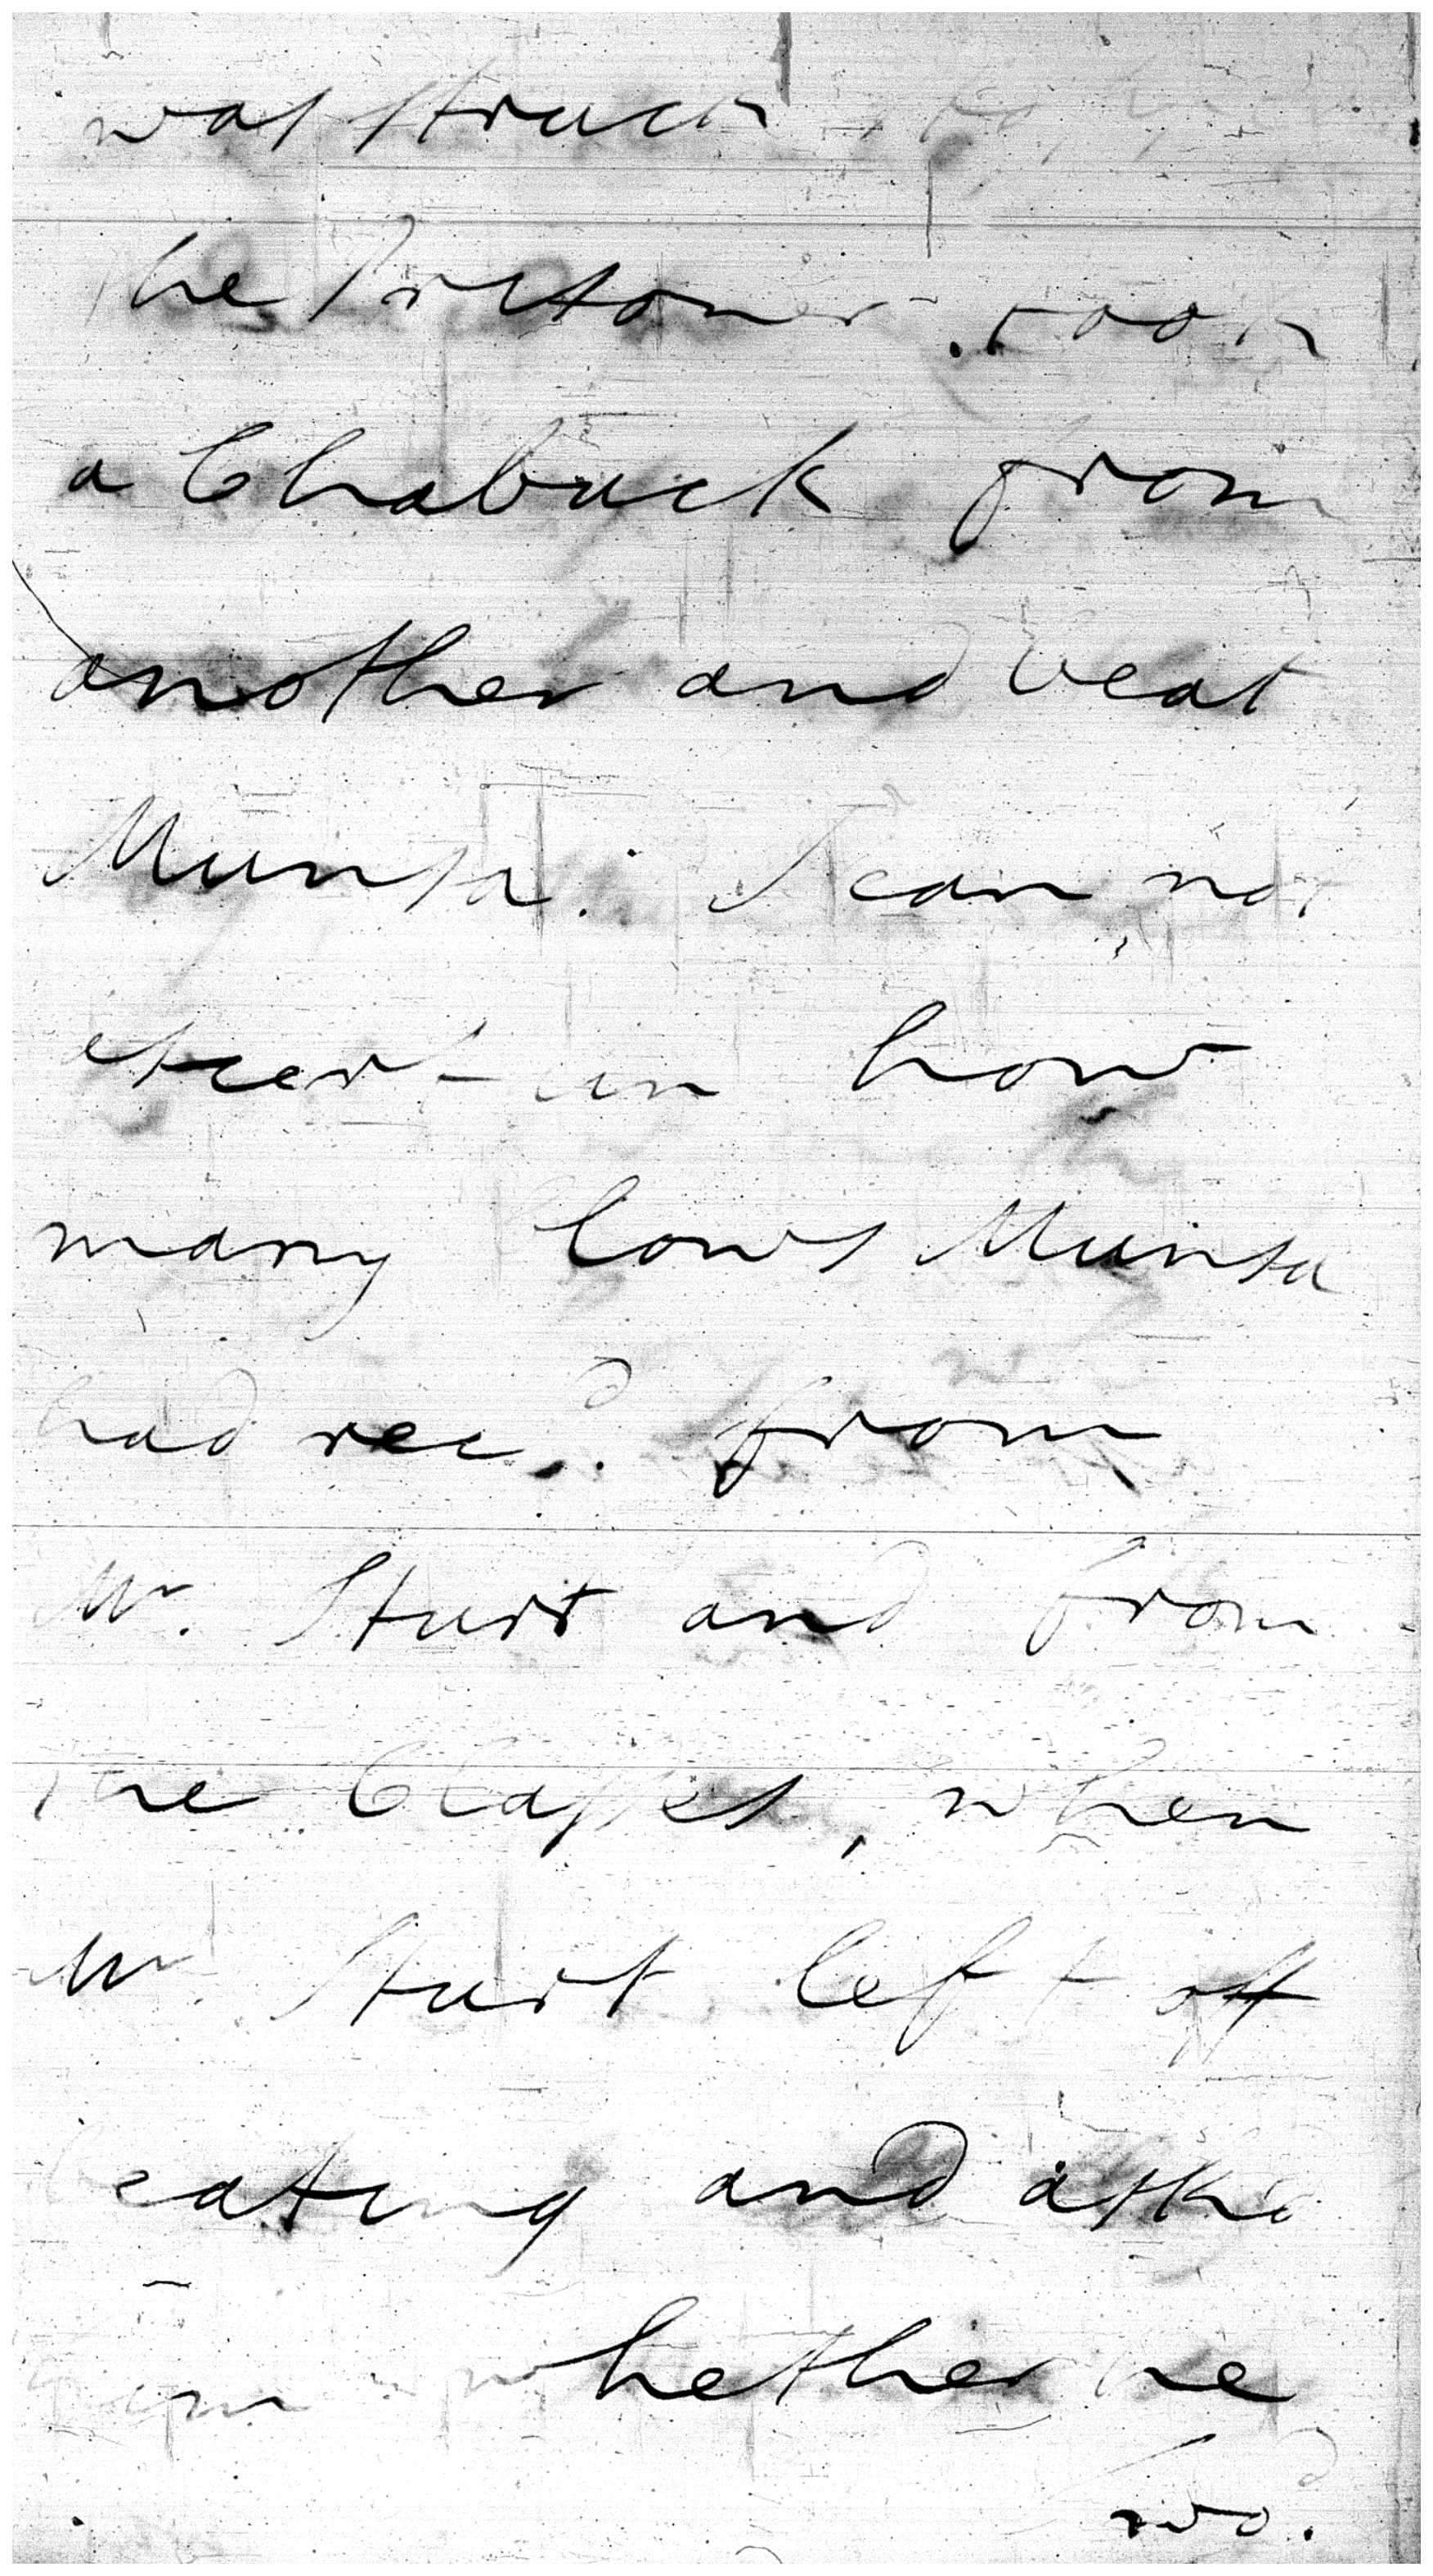 was struck
the Prisoner took
a Chabuck from
another and beat
Munsa. I can not
ascertain how
many blows Munsa
had rec.d from
Mr. Sturt and from
the Classes, when
Mr. Sturt left off
beating and ask'd
him whether he
wo.d